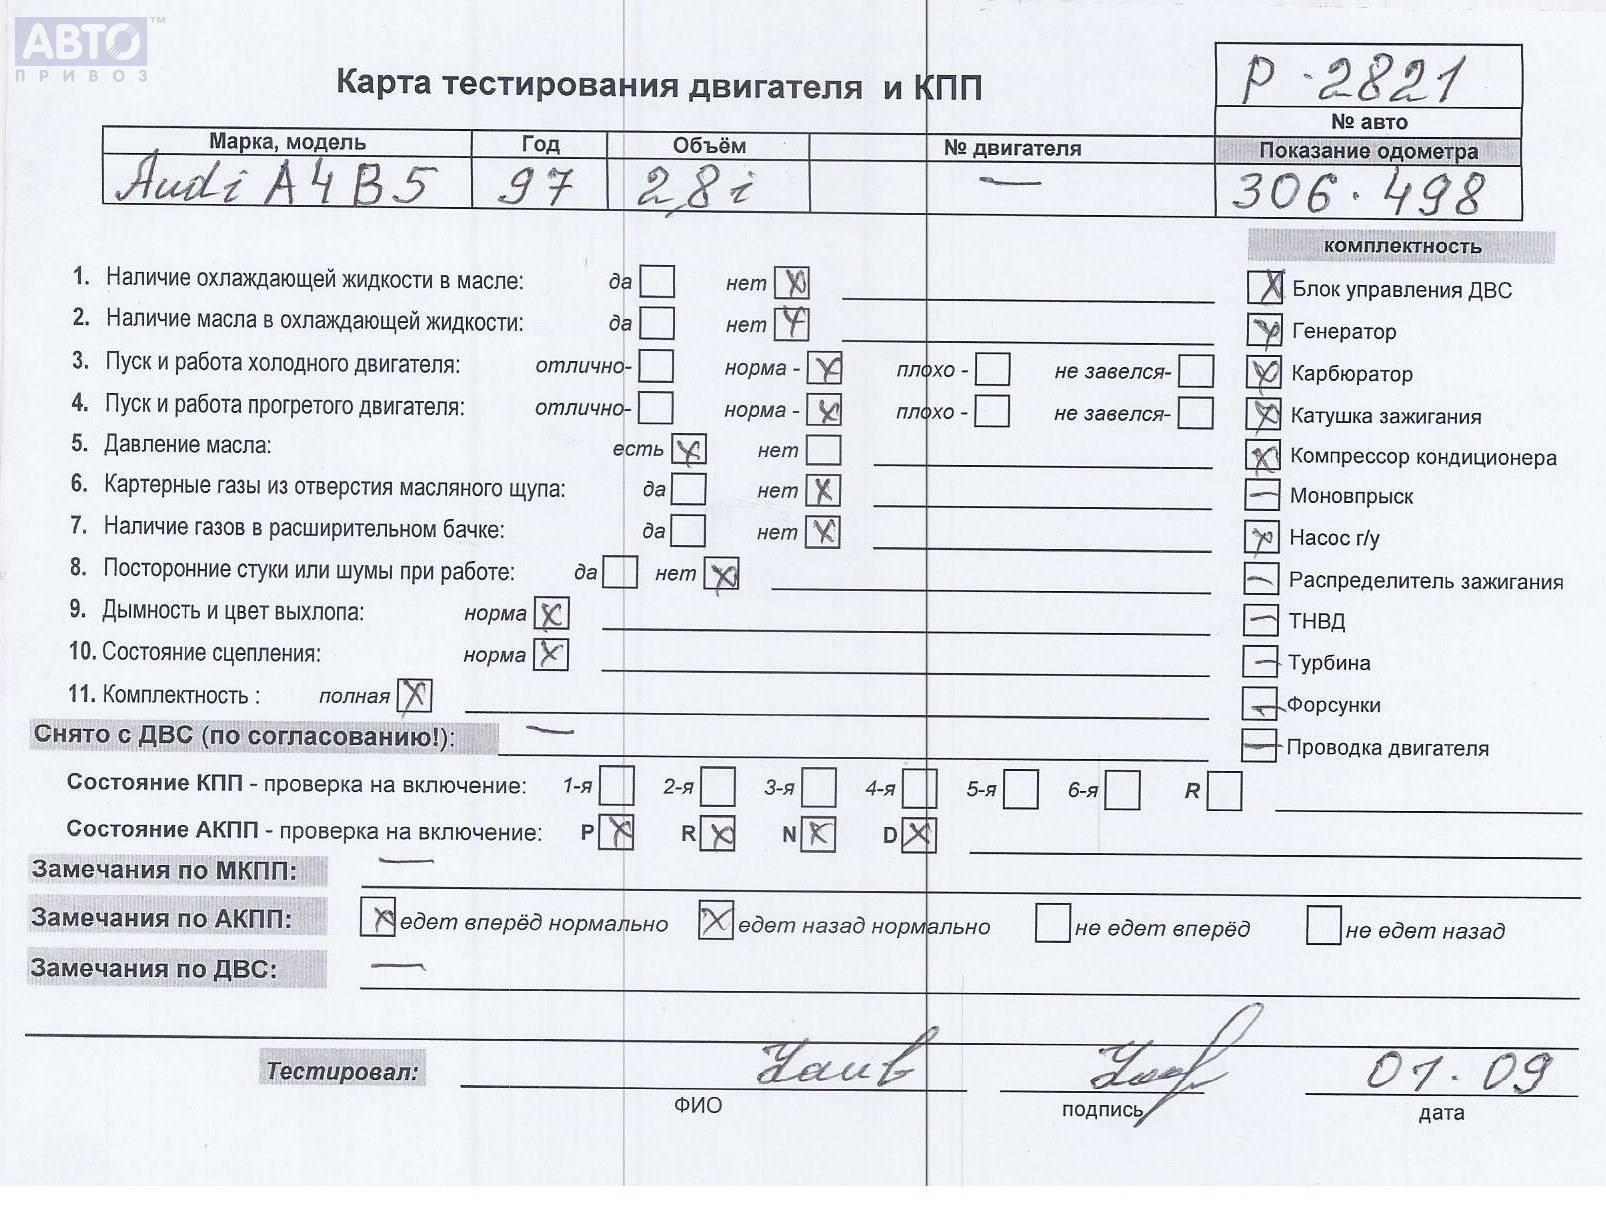 АВТО™
ПРИВОЗ
Карта тестирования двигателя и КПП
Р-2821
№ авто
Марка, модель Год Объём № двигателя Показание одометра
Audi A4 B5 97 2,8i — 306.498
комплектность
1. Наличие охлаждающей жидкости в масле: да нет
2. Наличие масла в охлаждающей жидкости: да нет
3. Пуск и работа холодного двигателя: отлично- норма - плохо - не завелся-
4. Пуск и работа прогретого двигателя: отлично- норма - плохо - не завелся-
5. Давление масла: есть нет
6. Картерные газы из отверстия масляного щупа: да нет
7. Наличие газов в расширительном бачке: да нет
8. Посторонние стуки или шумы при работе: да нет
9. Дымность и цвет выхлопа: норма
10. Состояние сцепления: норма
11. Комплектность : полная
Блок управления ДВС
Генератор
Карбюратор
Катушка зажигания
Компрессор кондиционера
Моновпрыск
Насос г/у
Распределитель зажигания
ТНВД
Турбина
Форсунки
Проводка двигателя
Снято с ДВС (по согласованию!): —
Состояние КПП - проверка на включение: 1-я 2-я 3-я 4-я 5-я 6-я R
Состояние АКПП - проверка на включение: P R N D
Замечания по МКПП: —
Замечания по АКПП: едет вперёд нормально едет назад нормально не едет вперёд не едет назад
Замечания по ДВС: —
Тестировал: 01.09
ФИО подпись дата